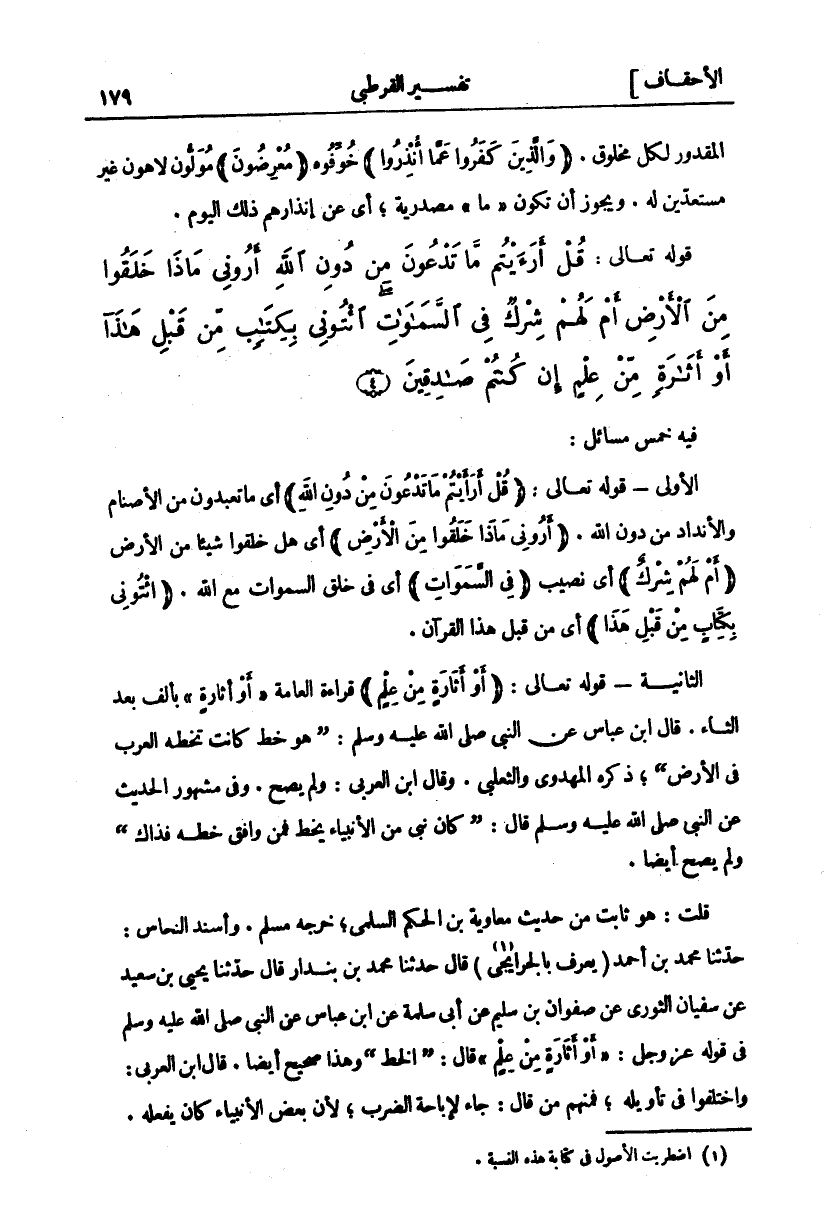 الأحقاف] تفسير القرطبى ١٧٩
المقدور لكل مخلوق . ﴿وَالَّذِينَ كَفَرُوا عَمَّا أُنْذِرُوا﴾ خُوِّفُوه ﴿مُعْرِضُونَ﴾ مُوَلُّون لاهون غير
مستعدّين له . ويجوز أن تكون « ما » مصدرية ؛ أى عن إنذارهم ذلك اليوم .
قوله تعالى : قُلْ أَرَءَيْتُم مَّا تَدْعُونَ مِن دُونِ ٱللَّهِ أَرُونِى مَاذَا خَلَقُوا
مِنَ ٱلْأَرْضِ أَمْ لَهُمْ شِرْكٌ فِى ٱلسَّمَـٰوَٰتِ ۖ ٱئْتُونِى بِكِتَـٰبٍ مِّن قَبْلِ هَـٰذَآ
أَوْ أَثَـٰرَةٍ مِّنْ عِلْمٍ إِن كُنتُمْ صَـٰدِقِينَ ﴿٤﴾
فيه خمس مسائل :
الأولى – قوله تعـالى : ﴿قُلْ أَرَأَيْتُمْ مَا تَدْعُونَ مِنْ دُونِ اللهِ﴾ أى ما تعبدون من الأصنام
والأنداد من دون الله . ﴿أَرُونِى مَاذَا خَلَقُوا مِنَ الْأَرْضِ﴾ أى هل خلقوا شيئا من الأرض
﴿أَمْ لَهُمْ شِرْكٌ﴾ أى نصيب ﴿فِى السَّمَوَاتِ﴾ أى فى خلق السموات مع الله . ﴿ائْتُونِى
بِكِتَابٍ مِنْ قَبْلِ هَذَا﴾ أى من قبل هذا القرآن .
الثانيـــة – قوله تعـالى : ﴿أَوْ أَثَارَةٍ مِنْ عِلْمٍ﴾ قراءة العامة « أَوْ أثارةٍ » بألف بعد
الثـاء . قال ابن عباس عن النبى صلى الله عليـه وسلم : ” هو خط كانت تخطه العرب
فى الأرض “ ؛ ذكره المهدوى والثعلبى . وقال ابن العربى : ولم يصح . وفى مشهور الحديث
عن النبى صلى الله عليـه وسـلم قال : ” كان نبى من الأنبياء يخط فمن وافق خطـه فذاك “
ولم يصح أيضا .
قلت : هو ثابت من حديث معاوية بن الحكم السلمى؛ خرجه مسلم . وأسند النحاس :
حدّثنا محمد بن أحمد ( يعرف بالجرايجى(١) ) قال حدثنا محمد بن بنـدار قال حدّثنا يحيى بن سعيد
عن سفيان الثورى عن صفوان بن سليم عن أبى سلمة عن ابن عباس عن النبى صلى الله عليه وسلم
فى قوله عز وجل : « أَوْ أَثَارَةٍ مِنْ عِلْمٍ » قال : ” الخط “ وهذا صحيح أيضا . قال ابن العربى :
واختلفوا فى تأويله ؛ فمنهم من قال : جاء لإباحة الضرب ؛ لأن بعض الأنبياء كان يفعله .
(١) اضطربت الأصول فى كتابة هذه النسبة .